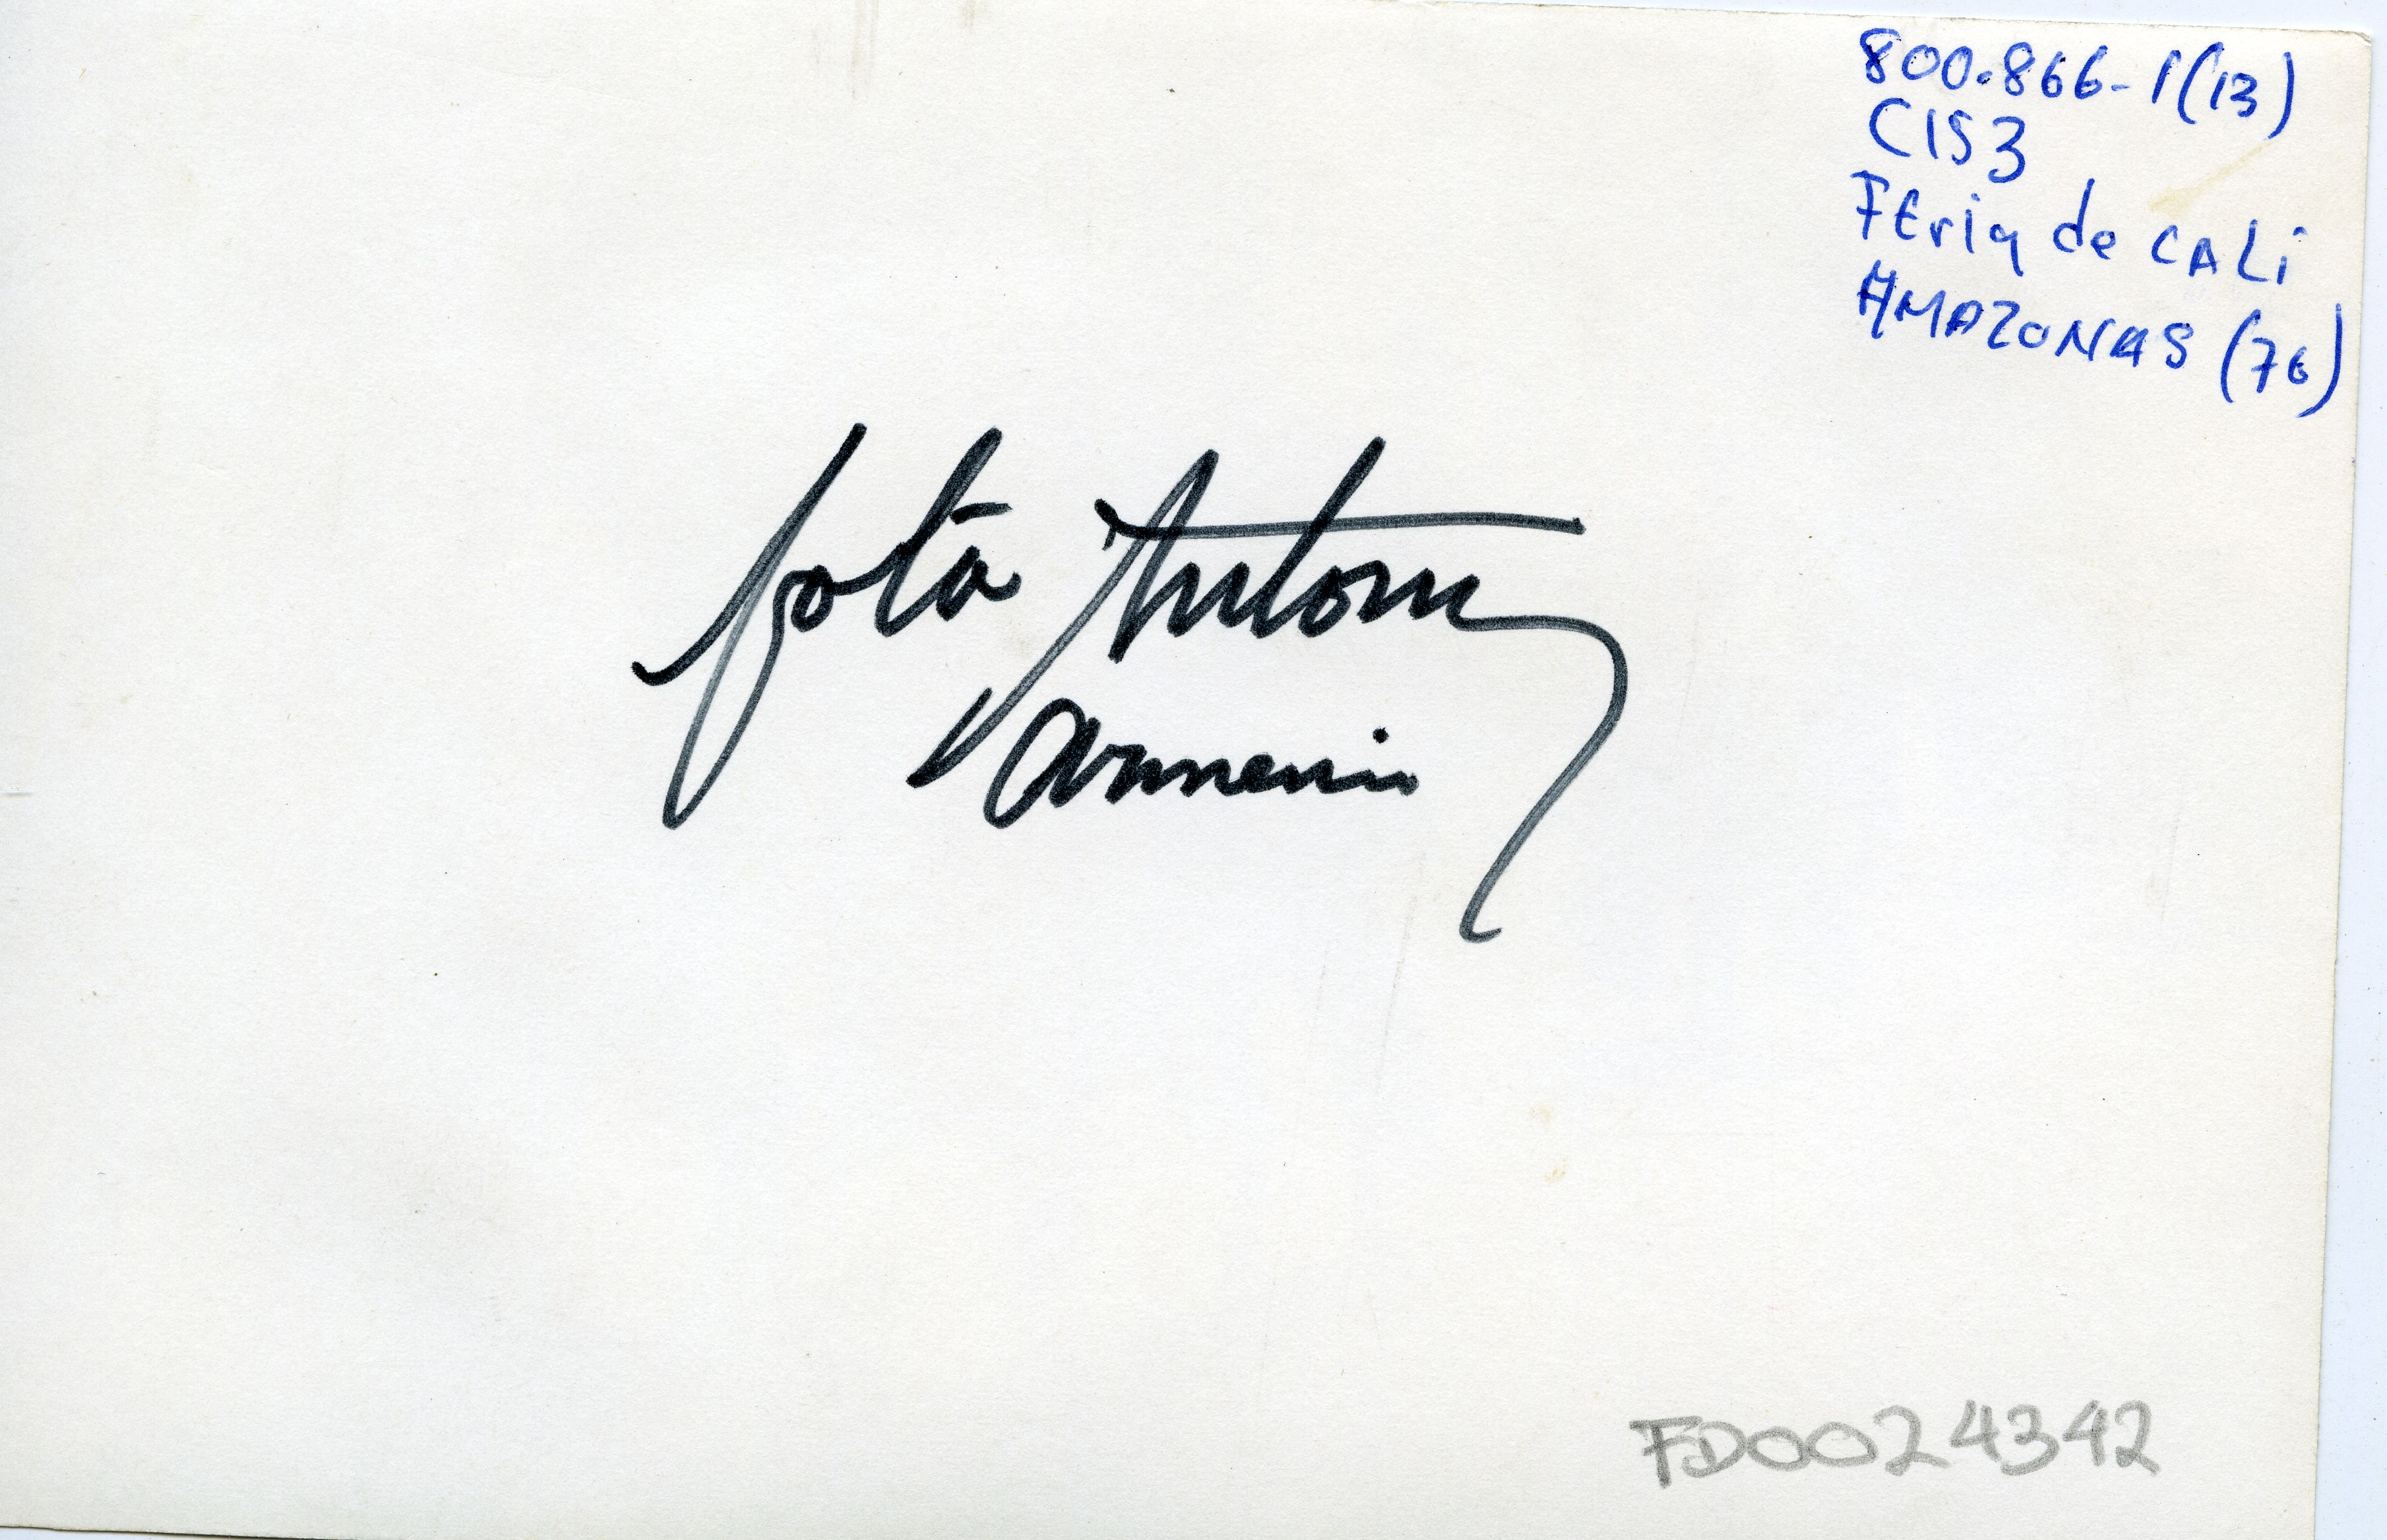 800.866-1(13)
C1S3
FEria de CALi
AMAZONAS (76)
foto Antony
Armenia
FD0024342